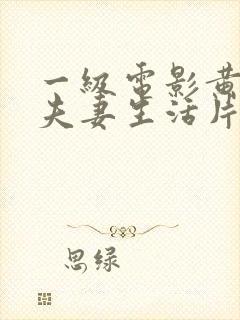 一级电影黄
夫妻生活片
思绿